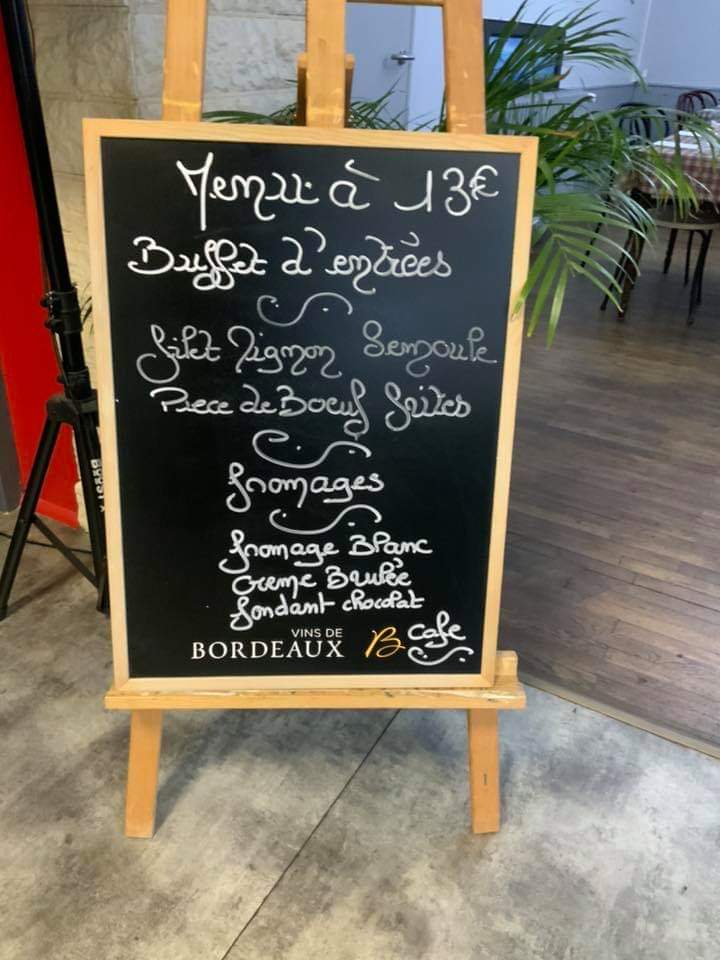 Menu à 13€
Buffet d'entrées
filet Mignon Semoule
Piece de Boeuf frites
fromages
fromage Blanc
Creme Brulée
fondant chocolat
VINS DE
BORDEAUX B cafe